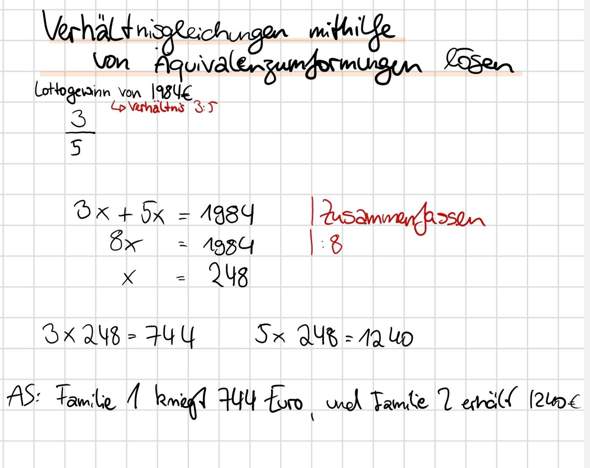 Verhältnisgleichungen mithilfe
von Äquivalenzumformungen lösen
Lottogewinn von 1984€
↳ Verhältnis 3:5
3
5
3x + 5x = 1984 | Zusammenfassen
8x = 1984 | :8
x = 248
3 x 248 = 744 5 x 248 = 1240
AS: Familie 1 kriegt 744 Euro, und Familie 2 erhält 1240€